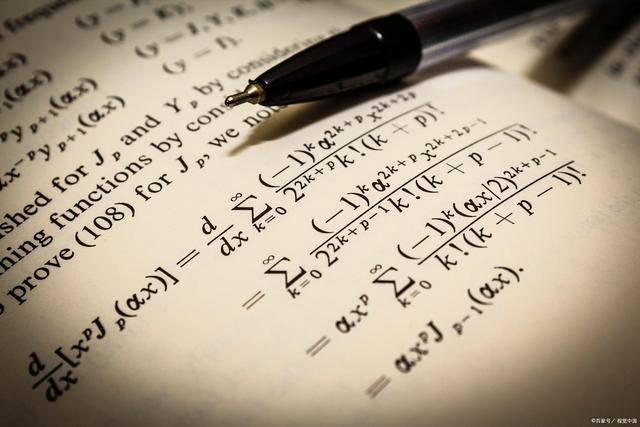 (y = I).
y_{p+1}(αx)
αx^{-p}y_{p+1}(αx)
shed for J_p and Y_p by considering
ning functions by con
prove (108) for J_p, we no
\frac{d}{dx}[x^pJ_p(αx)] = \frac{d}{dx} \sum_{k=0}^{∞} \frac{(-1)^k α^{2k+p} x^{2k+2p}}{2^{2k+p} k!(k + p)!}
= \sum_{k=0}^{∞} \frac{(-1)^k α^{2k+p} x^{2k+2p-1}}{2^{2k+p-1} k!(k + p - 1)!}
= αx^p \sum_{k=0}^{∞} \frac{(-1)^k (αx|2)^{2k+p-1}}{k!(k + p - 1)!}
= αx^pJ_{p-1}(αx).
©百家号/视觉中国